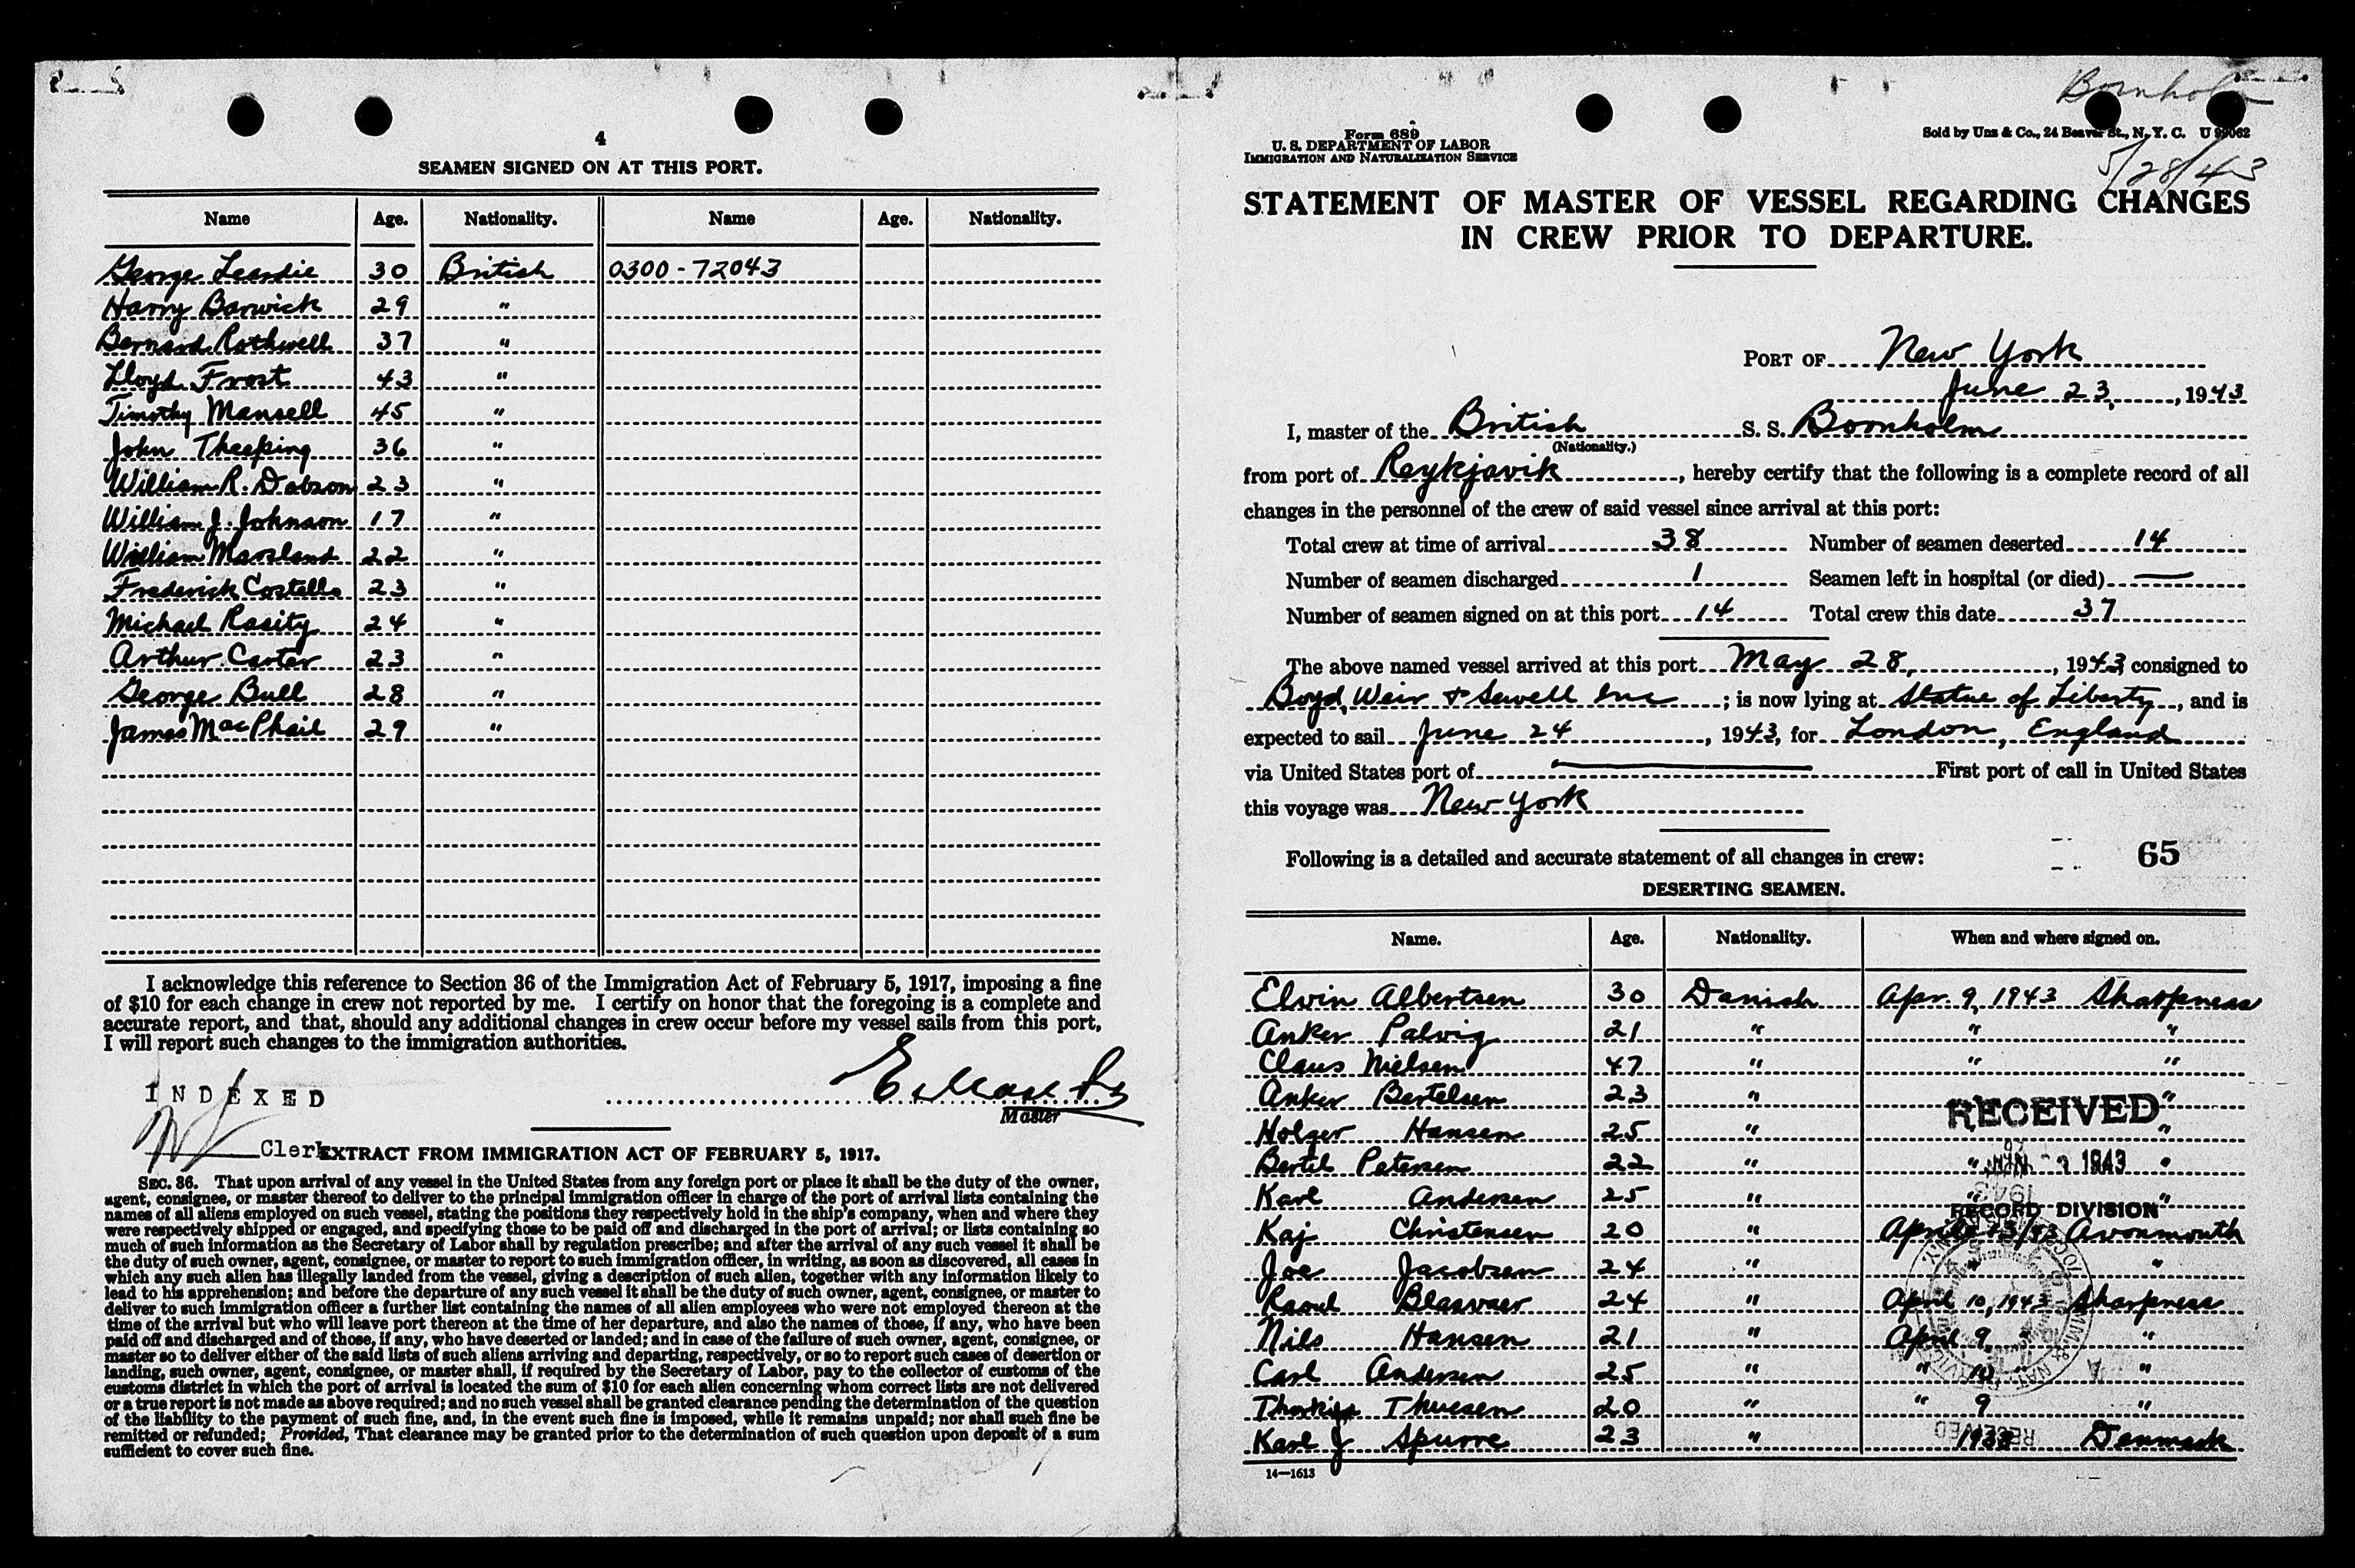 4
SEAMEN SIGNED ON AT THIS PORT.
Name Age. Nationality. Name Age. Nationality.
George Leardie 30 British 0300-72043
Harry Barwick 29 "
Bernard Rothwell 37 "
Lloyd Frost 43 "
Timothy Mansell 45 "
John Theeping 36 "
William R. Dobson 23 "
William J. Johnson 17 "
William Marsland 22 "
Frederick Costello 23 "
Michael Rasity 24 "
Arthur Carter 23 "
George Bull 28 "
James MacPhail 29 "
I acknowledge this reference to Section 36 of the Immigration Act of February 5, 1917, imposing a fine
of $10 for each change in crew not reported by me. I certify on honor that the foregoing is a complete and
accurate report, and that, should any additional changes in crew occur before my vessel sails from this port,
I will report such changes to the immigration authorities.
INDEXED
Master
Clerk
EXTRACT FROM IMMIGRATION ACT OF FEBRUARY 5, 1917.
SEC. 36. That upon arrival of any vessel in the United States from any foreign port or place it shall be the duty of the owner,
agent, consignee, or master thereof to deliver to the principal immigration officer in charge of the port of arrival lists containing the
names of all aliens employed on such vessel, stating the positions they respectively hold in the ship's company, when and where they
were respectively shipped or engaged, and specifying those to be paid off and discharged in the port of arrival; or lists containing so
much of such information as the Secretary of Labor shall by regulation prescribe; and after the arrival of any such vessel it shall be
the duty of such owner, agent, consignee, or master to report to such immigration officer, in writing, as soon as discovered, all cases in
which any such alien has illegally landed from the vessel, giving a description of such alien, together with any information likely to
lead to his apprehension; and before the departure of any such vessel it shall be the duty of such owner, agent, consignee, or master to
deliver to such immigration officer a further list containing the names of all alien employees who were not employed thereon at the
time of the arrival but who will leave port thereon at the time of her departure, and also the names of those, if any, who have been
paid off and discharged and of those, if any, who have deserted or landed; and in case of the failure of such owner, agent, consignee, or
master so to deliver either of the said lists of such aliens arriving and departing, respectively, or so to report such cases of desertion or
landing, such owner, agent, consignee, or master shall, if required by the Secretary of Labor, pay to the collector of customs of the
customs district in which the port of arrival is located the sum of $10 for each alien concerning whom correct lists are not delivered
or a true report is not made as above required; and no such vessel shall be granted clearance pending the determination of the question
of the liability to the payment of such fine, and, in the event such fine is imposed, while it remains unpaid; nor shall such fine be
remitted or refunded; Provided, That clearance may be granted prior to the determination of such question upon deposit of a sum
sufficient to cover such fine.
Bornholm
Form 689
U. S. DEPARTMENT OF LABOR
IMMIGRATION AND NATURALIZATION SERVICE
Sold by Uns & Co., 24 Beaver St., N. Y. C. U 99062
5/28/43
STATEMENT OF MASTER OF VESSEL REGARDING CHANGES
IN CREW PRIOR TO DEPARTURE.
PORT OF New York
June 23, , 1943
I, master of the British S. S. Bornholm
(Nationality.)
from port of Reykjavik , hereby certify that the following is a complete record of all
changes in the personnel of the crew of said vessel since arrival at this port:
Total crew at time of arrival 38 Number of seamen deserted 14
Number of seamen discharged 1 Seamen left in hospital (or died) —
Number of seamen signed on at this port 14 Total crew this date 37
The above named vessel arrived at this port May 28, , 1943, consigned to
Boyd, Weir & Sewell Inc ; is now lying at Statue of Liberty , and is
expected to sail June 24 , 1943, for London, England
via United States port of — First port of call in United States
this voyage was New York
Following is a detailed and accurate statement of all changes in crew: 65
DESERTING SEAMEN.
Name. Age. Nationality. When and where signed on.
Elvin Albertsen 30 Danish Apr. 9, 1943 Sharpness
Anker Palvig 21 " " "
Claus Nielsen 47 " " "
Anker Bertelsen 23 " "
RECEIVED
Holger Hansen 25 " " "
Bertel Petersen 22 " " "
1943
Karl Andersen 25 " " "
RECORD DIVISION
Kaj Christensen 20 " April 23/43 Avonmouth
Joe Jacobsen 24 " " "
Raoul Blasvaer 24 " April 10, 1943 Sharpness
Nils Hansen 21 " April 9, " "
Carl Andersen 25 " " 10 "
Thuesen 20 " " 9 "
Karl J Spurre 23 " 1938 Denmark
RECEIVED
14—1613